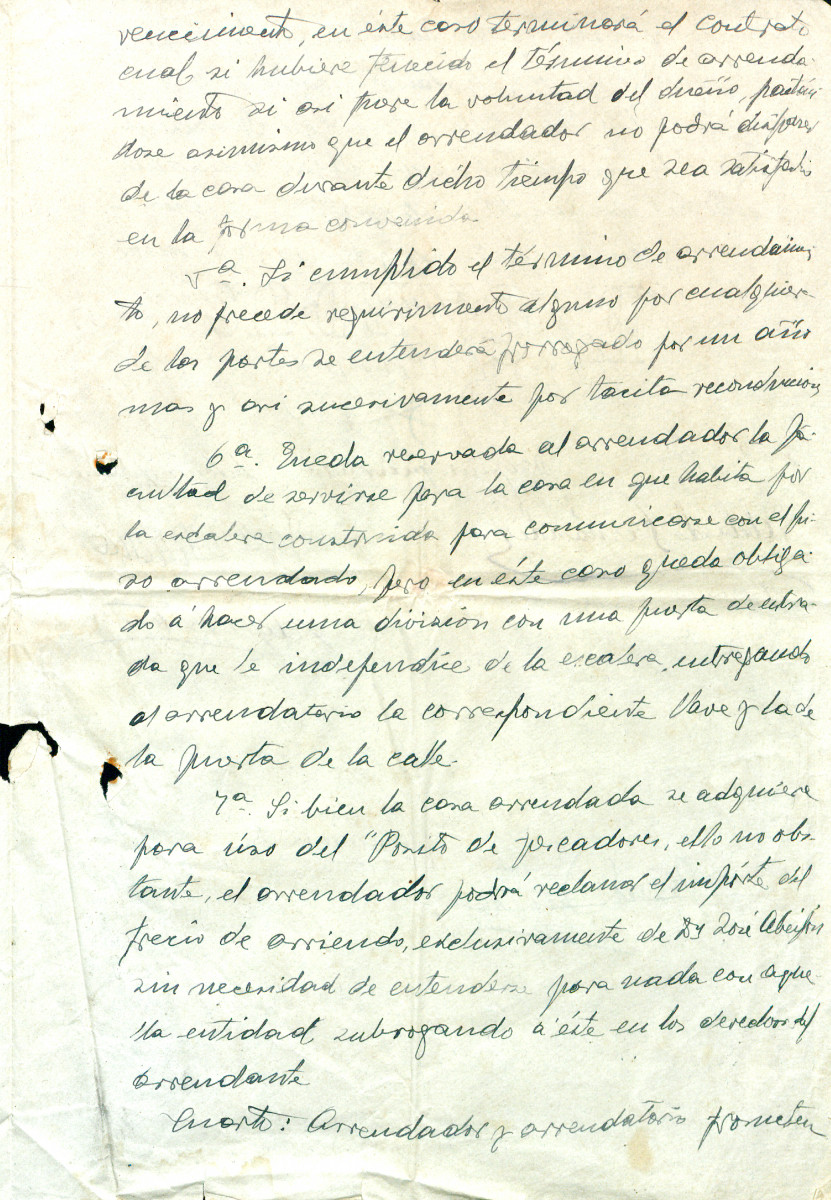 vencimiento, en éste caso terminará el contrato
cual si hubiere fenecido el término de arrenda-
miento si asi fuere la voluntad del dueño, pactán-
dose asimismo que el arrendador no podrá disponer
de la casa durante dicho tiempo que sea satisfecho
en la forma convenida.
5ª. Si cumplido el término de arrendamien-
to, no precede requirimento alguno por cualquiera
de las partes se entenderá prorrogado por un año
mas y asi sucesivamente por tacita reconducion
6ª. Queda reservada al arrendador la fa-
cultad de servirse para la casa en que habita por
la escalera construida para comunicarse con el pi-
so arrendado, pero en éste caso queda obliga-
do á hacer una división con una puerta de entra-
da que le independice de la escalera, entregando
al arrendatario la correspondiente llave y la de
la puerta de la calle.
7ª. Si bien la casa arrendada se adquiere
para uso del "Posito de pescadores, ello no obs-
tante, el arrendador podrá reclamar el impórte del
precio de arriendo, exclusivamente de Dn José
sin necesidad de entenderse para nada con aque-
lla entidad subrogando á éste en los derechos del
arrendante
Cuarto: Arrendador y arrendatario prometen